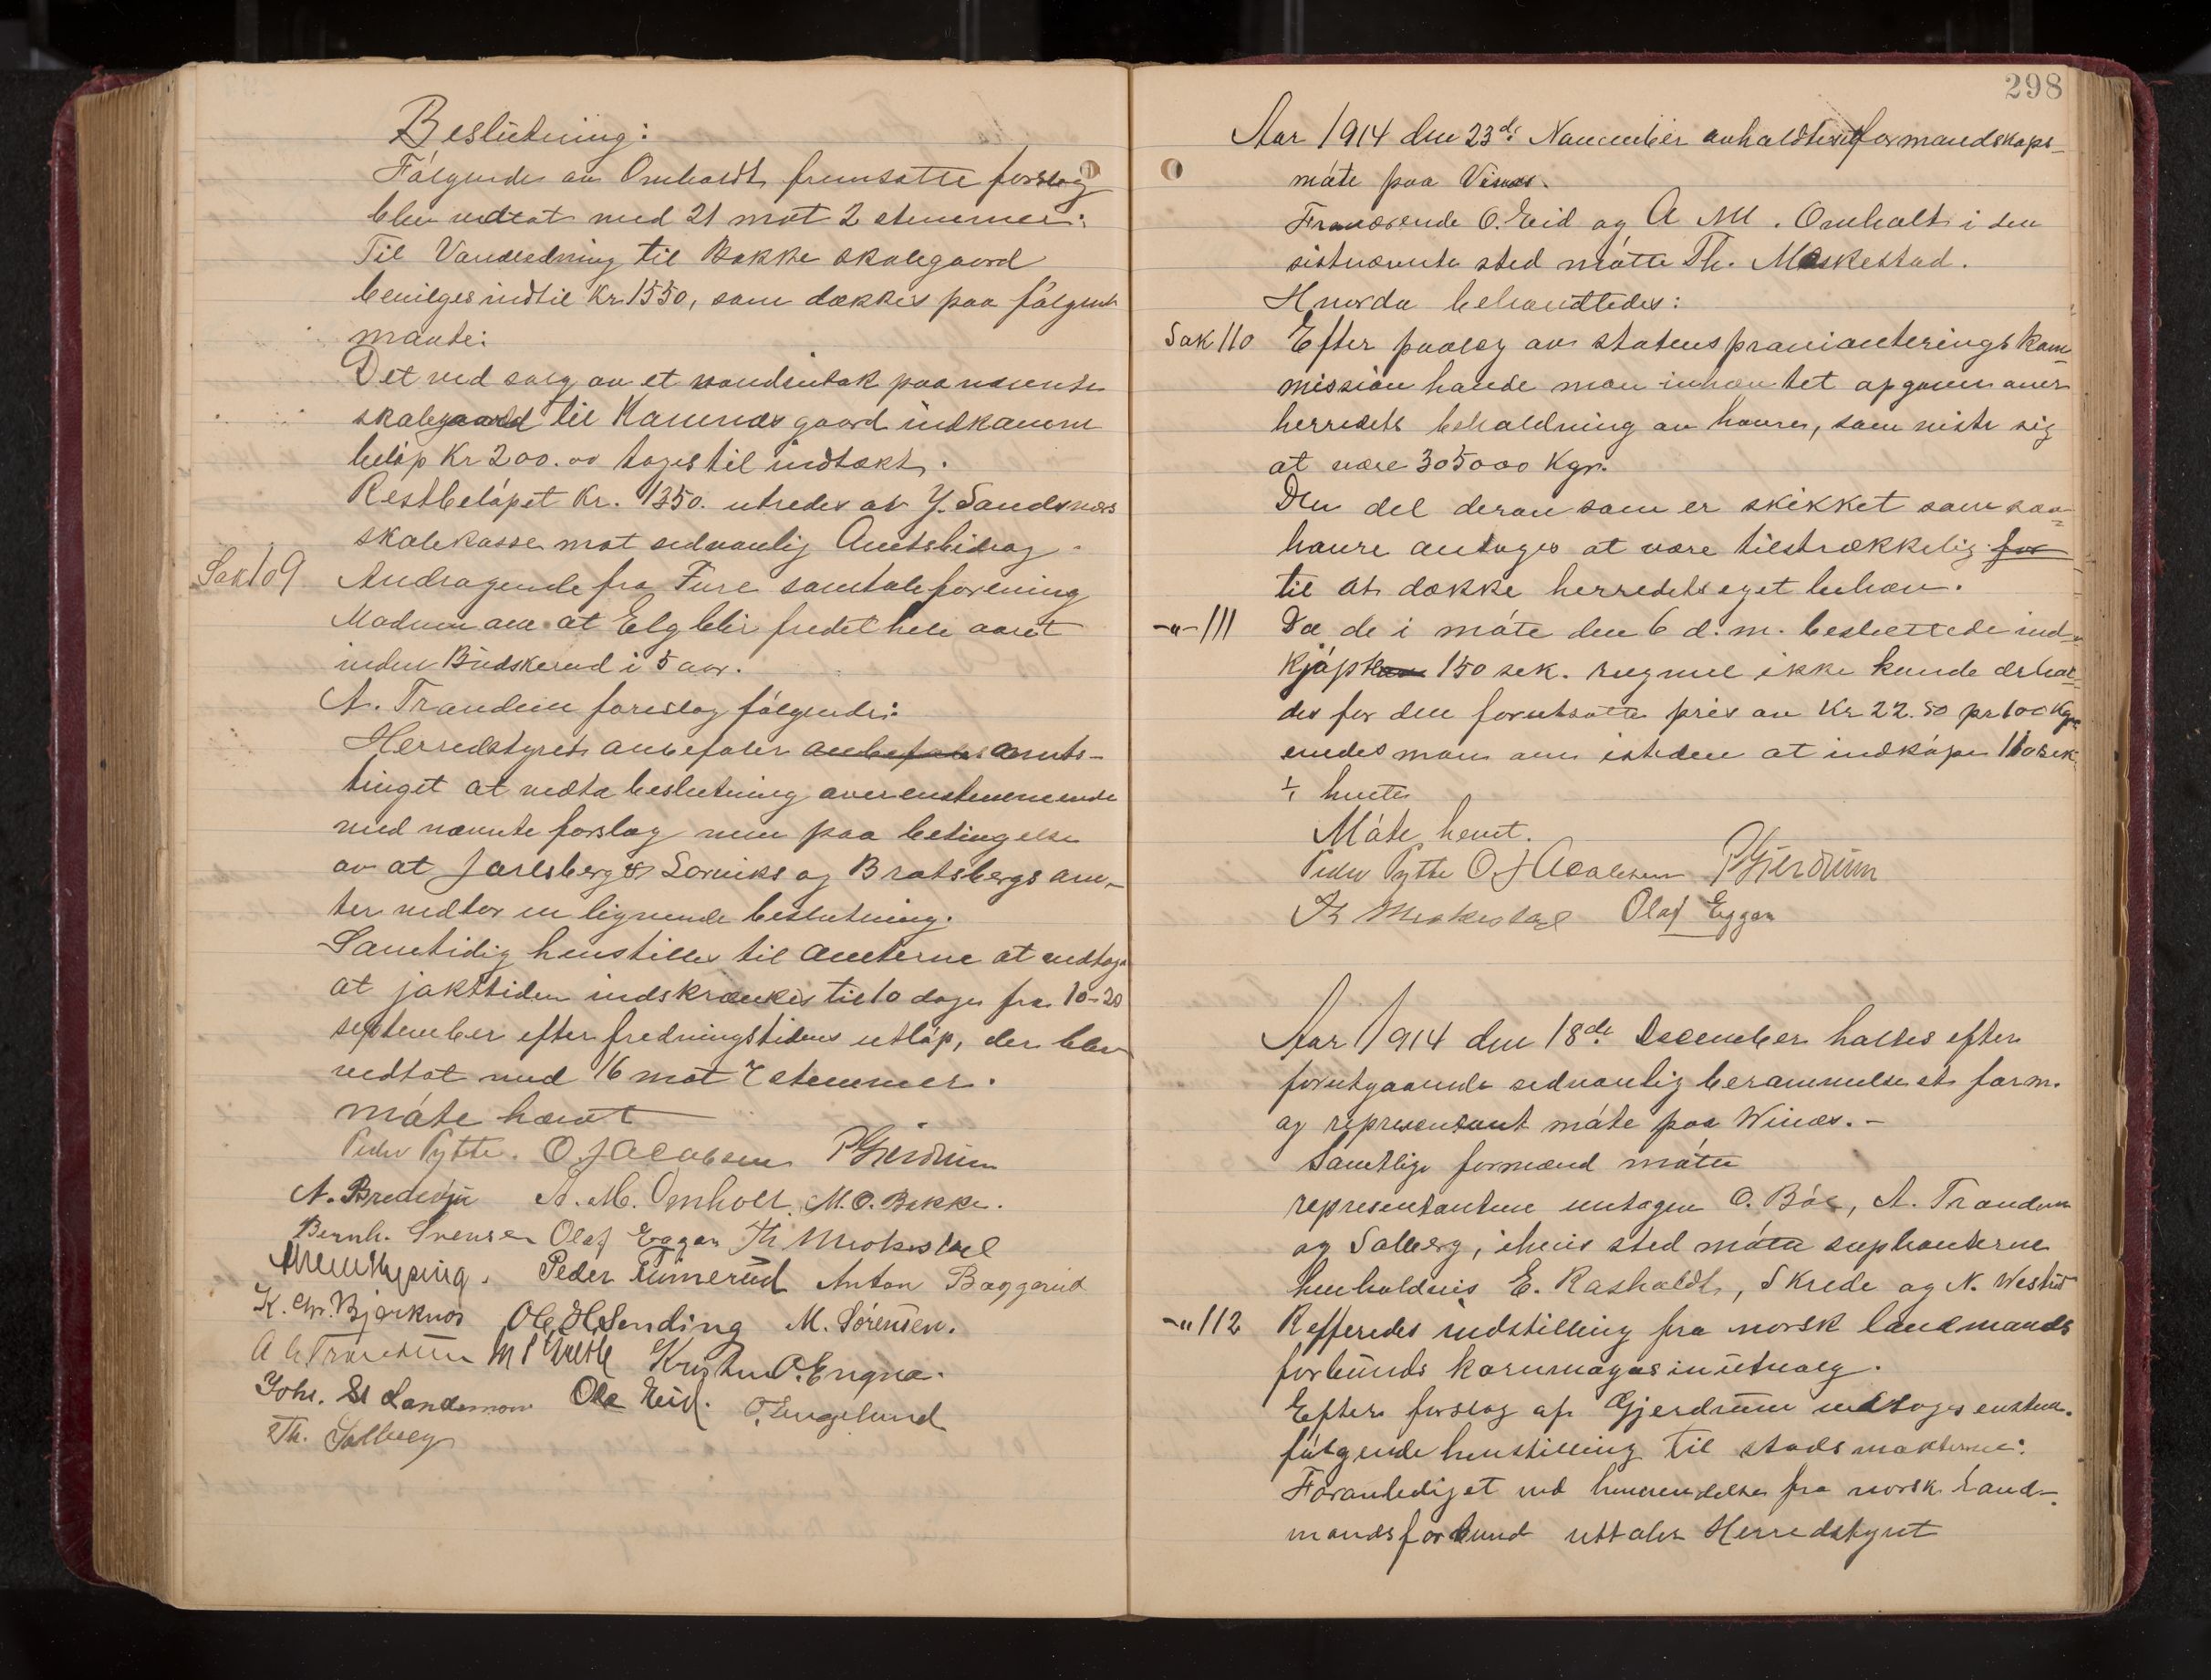 Beslutning:
Følgende av Omholdt fremsatte forslag
blev vedtat med 21 mot 2 stemmer:
Til Vandledning til Bakke skolegaard
bevilges indtil Kr. 1550, som dækkes paa følgende
maate:
Det ved salg av et vandintak paa nævnte
skolegaard til Kamnæs gaard indkomm
beløp Kr 200.00 tages til indtækt.
Restbeløpet Kr. 1350. utredes av Y. Sandsvær
skolekasse mot sedvanlig Amtsbidrag.
Sak 109 Andragende fra Fure samtaleforening
Modum om at Elg blir fredet hele aaret
inden Budskerud i 5 aar.
A. Trandem foreslog følgende:
Herredstyret anbefaler anbefaler amts-
tinget at vedta beslutning overenstemmende
med nævnte forslag men paa betingelse
av at Jarlsberg & Larviks og Bratsbergs am-
ter vedtar en lignende beslutning.
Samtidig henstilles til amterne at vedtage
at jakttiden indskrænkes til 10 dager fra 10-20
september efter fredningstidens utløp, der blev
vedtat med 16 mot 7 stemmer.
Møte hævet
Peder Pytte. O J Jacobsen P Gjerdrum
A. M. Omholt. M. O. Bakke.
Bernh. Svensen Olaf Eggar Th Meskestad
Peder Anton Baggerud
K. Chr. Bjerknes Ole H Sending M. Sørensen.
Kristen O. Engna.
Johs. Landsman Ole Eid. O. Engelund
Th. Solberg
298
Aar 1914 den 23de November avholdtes formandskaps-
møte paa Vinæs.
Fraværende O. Eid og A M. Omholt i den
sistnævnte sted møtte Th. Meskestad.
Hvorda behandledes:
Sak 110 Efter paalæg av statens provianteringskom-
mission havde man inhæntet opgaven over
herredets beholdning av havre, som viste sig
at være 305000 Kgr.
Den del derav som er skikket som saa-
havre antages at være tilstrækkelig for
til at dække herredets eget behov.
-"- 111 Da de i møte den 6 d. m. besluttede ind-
kjøp 150 sek. rugmel ikke kunde erhol-
des for den forutsatte pris av Kr 22.50 pr 100 Kgr
enedes man om isteden at indkøpe 110 sek.
1/1 hvete
Møte hevet.
Peder Pytte O J Jacobsen P Gjerdrum
Th Meskestad Olaf Eggar
Aar 1914 den 18de December holdes efter
forutgaaende sedvanlig berammelse et form.
og representant møte paa Winæs. -
Samtlige formænd møtte
representantene untagen O. Bøe, A. Trandem
og Solberg, i hvis sted møtte suplianterne
henholdsvis E. Rasholdt, Skrede og N. Westid
-"- 112 Refferedes indstilling fra norsk landmands
forbunds kornmagasinutvalg.
Efter forslag af Gjerdrum vedtoges enstem.
følgende henstilling til stadsmakterne:
Foranlediget ved henvendelse fra norsk Land-
mandsforbund uttaler Herredstyret